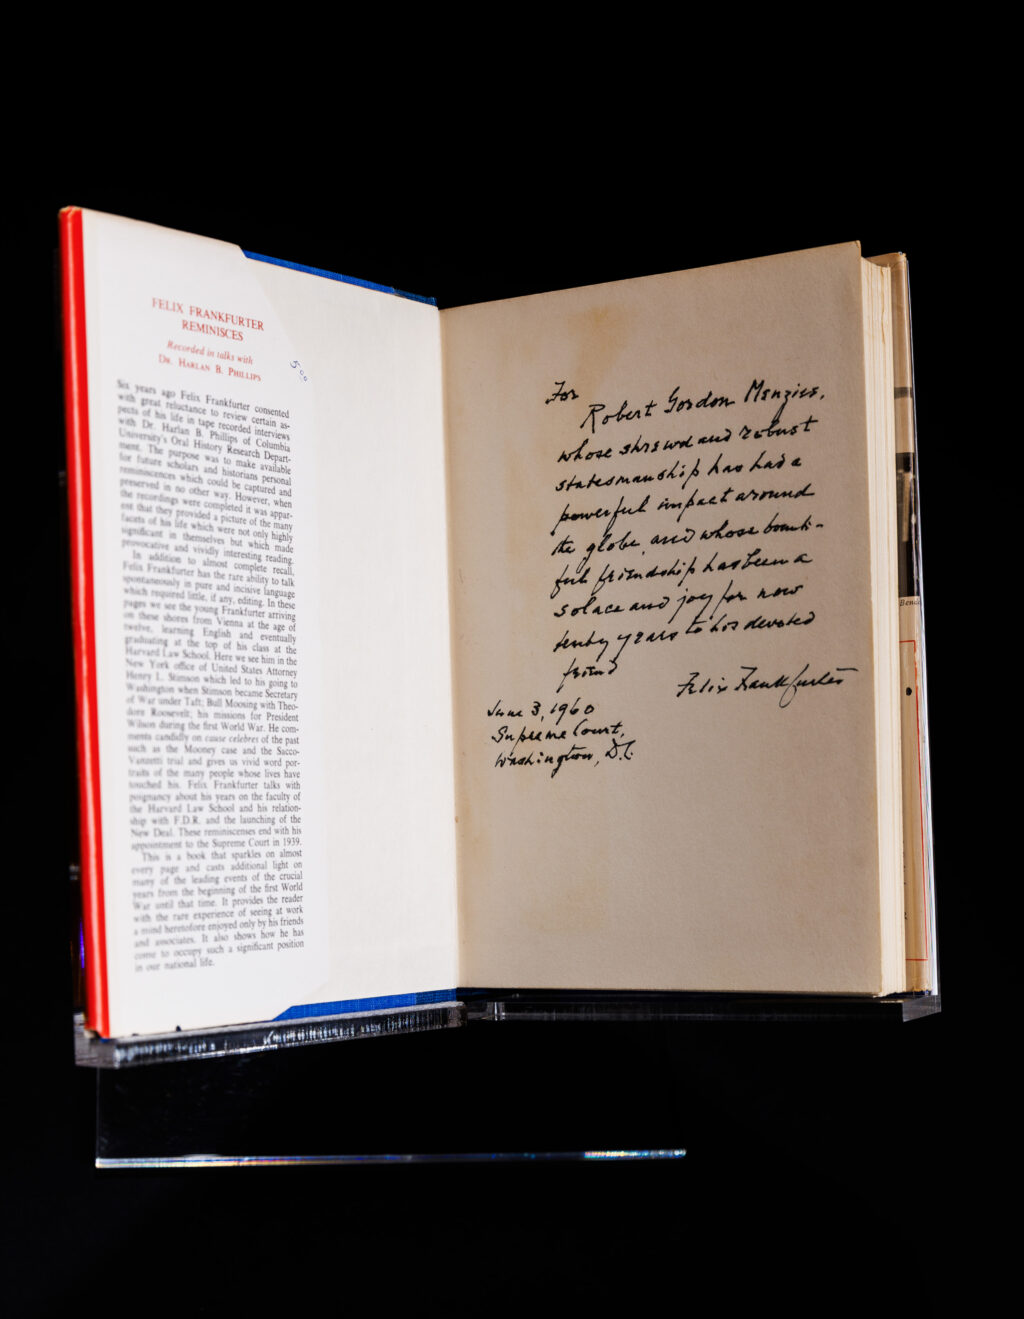 FELIX FRANKFURTER
REMINISCES
Recorded in talks with
DR. HARLAN B. PHILLIPS
5.00
Six years ago Felix Frankfurter consented
with great reluctance to review certain as-
pects of his life in tape recorded interviews
with Dr. Harlan B. Phillips of Columbia
University's Oral History Research Depart-
ment. The purpose was to make available
for future scholars and historians personal
reminiscences which could be captured and
preserved in no other way. However, when
the recordings were completed it was appar-
ent that they provided a picture of the many
facets of his life which were not only highly
significant in themselves but which made
provocative and vividly interesting reading.
In addition to almost complete recall,
Felix Frankfurter has the rare ability to talk
spontaneously in pure and incisive language
which required little, if any, editing. In these
pages we see the young Frankfurter arriving
on these shores from Vienna at the age of
twelve, learning English and eventually
graduating at the top of his class at the
Harvard Law School. Here we see him in the
New York office of United States Attorney
Henry L. Stimson which led to his going to
Washington when Stimson became Secretary
of War under Taft; Bull Moosing with Theo-
dore Roosevelt; his missions for President
Wilson during the first World War. He com-
ments candidly on cause celebres of the past
such as the Mooney case and the Sacco-
Vanzetti trial and gives us vivid word por-
traits of the many people whose lives have
touched his. Felix Frankfurter talks with
poignancy about his years on the faculty of
the Harvard Law School and his relation-
ship with F.D.R. and the launching of the
New Deal. These reminiscenses end with his
appointment to the Supreme Court in 1939.
This is a book that sparkles on almost
every page and casts additional light on
many of the leading events of the crucial
years from the beginning of the first World
War until that time. It provides the reader
with the rare experience of seeing at work
a mind heretofore enjoyed only by his friends
and associates. It also shows how he has
come to occupy such a significant position
in our national life.
For
Robert Gordon Menzies,
whose shrewd and robust
statesmanship has had a
powerful impact around
the globe, and whose bounti-
ful friendship has been a
solace and joy for now
twenty years to his devoted
friend
Felix Frankfurter
June 3, 1960
Supreme Court,
Washington, D.C.